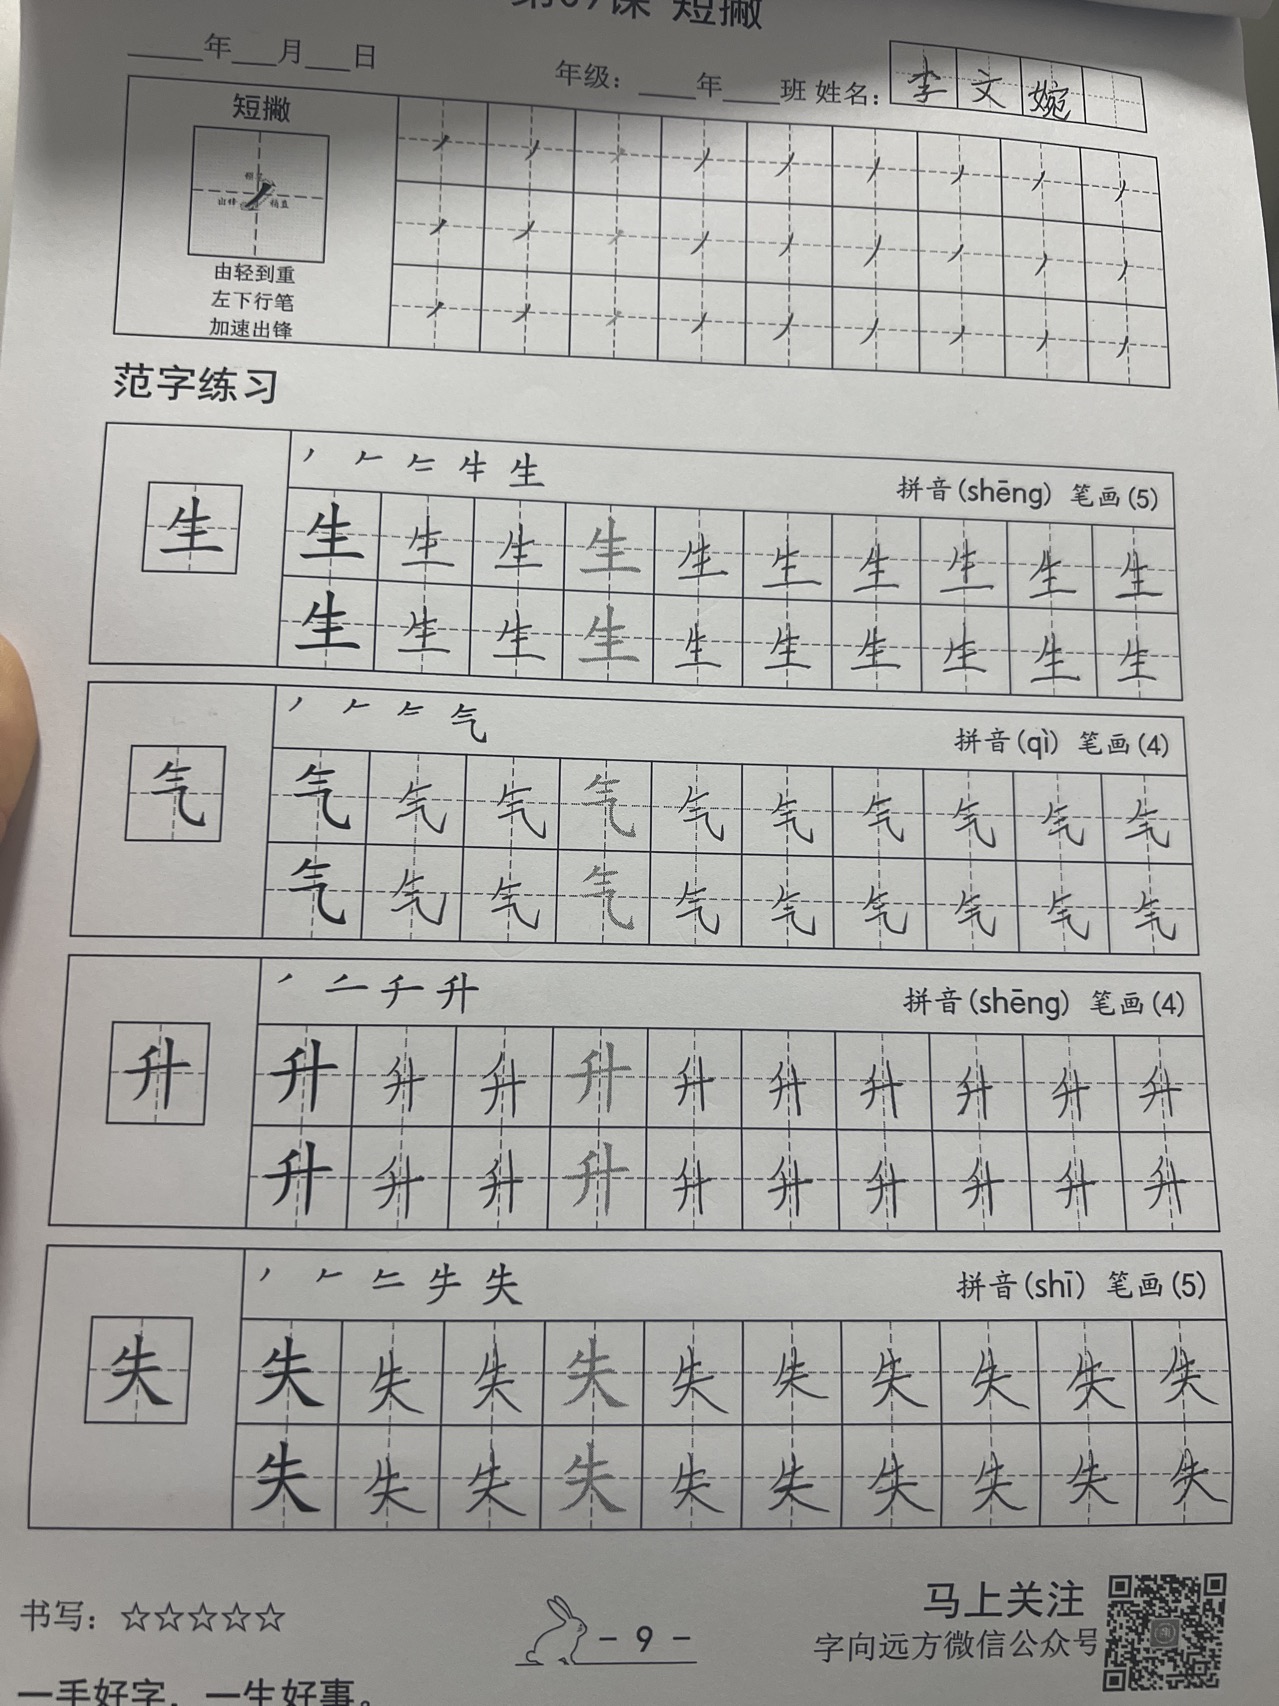 短撇
____年___月___日 年级：____年____班 姓名：李文婉
短撇
稍直
由轻到重
左下行笔
加速出锋
范字练习
生 拼音(shēng) 笔画(5)
生 生 生 生 生 生 生 生 生 生 生
生 生 生 生 生 生 生 生 生 生
气 拼音(qì) 笔画(4)
气 气 气 气 气 气 气 气 气 气 气
气 气 气 气 气 气 气 气 气 气
升 拼音(shēng) 笔画(4)
升 升 升 升 升 升 升 升 升 升 升
升 升 升 升 升 升 升 升 升 升
失 拼音(shī) 笔画(5)
失 失 失 失 失 失 失 失 失 失 失
失 失 失 失 失 失 失 失 失 失
书写：☆☆☆☆☆
- 9 -
马上关注
字向远方微信公众号
一手好字，一生好事。